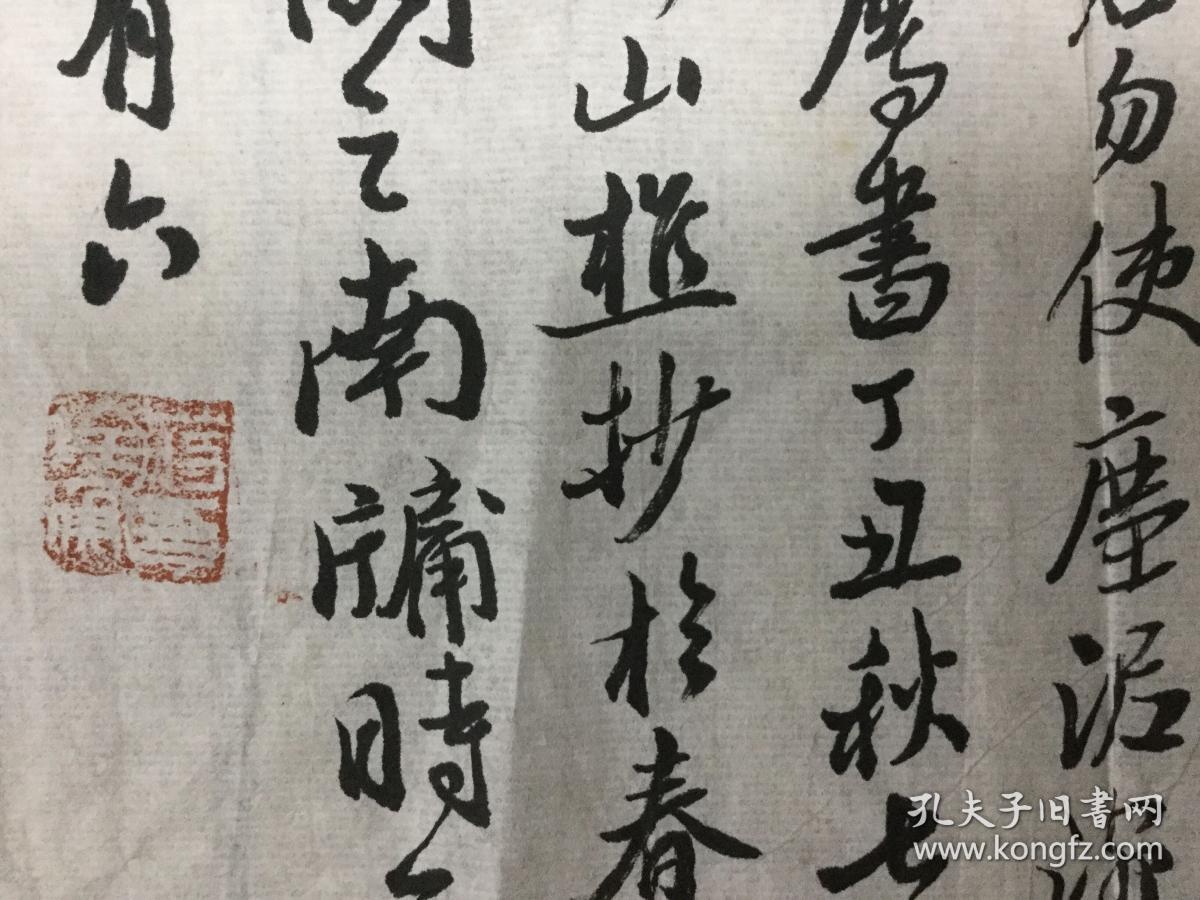 勿使塵泥
書丁丑秋七
山樵抄於春
之南牖時
有六
孔夫子旧书网
www.kongfz.com